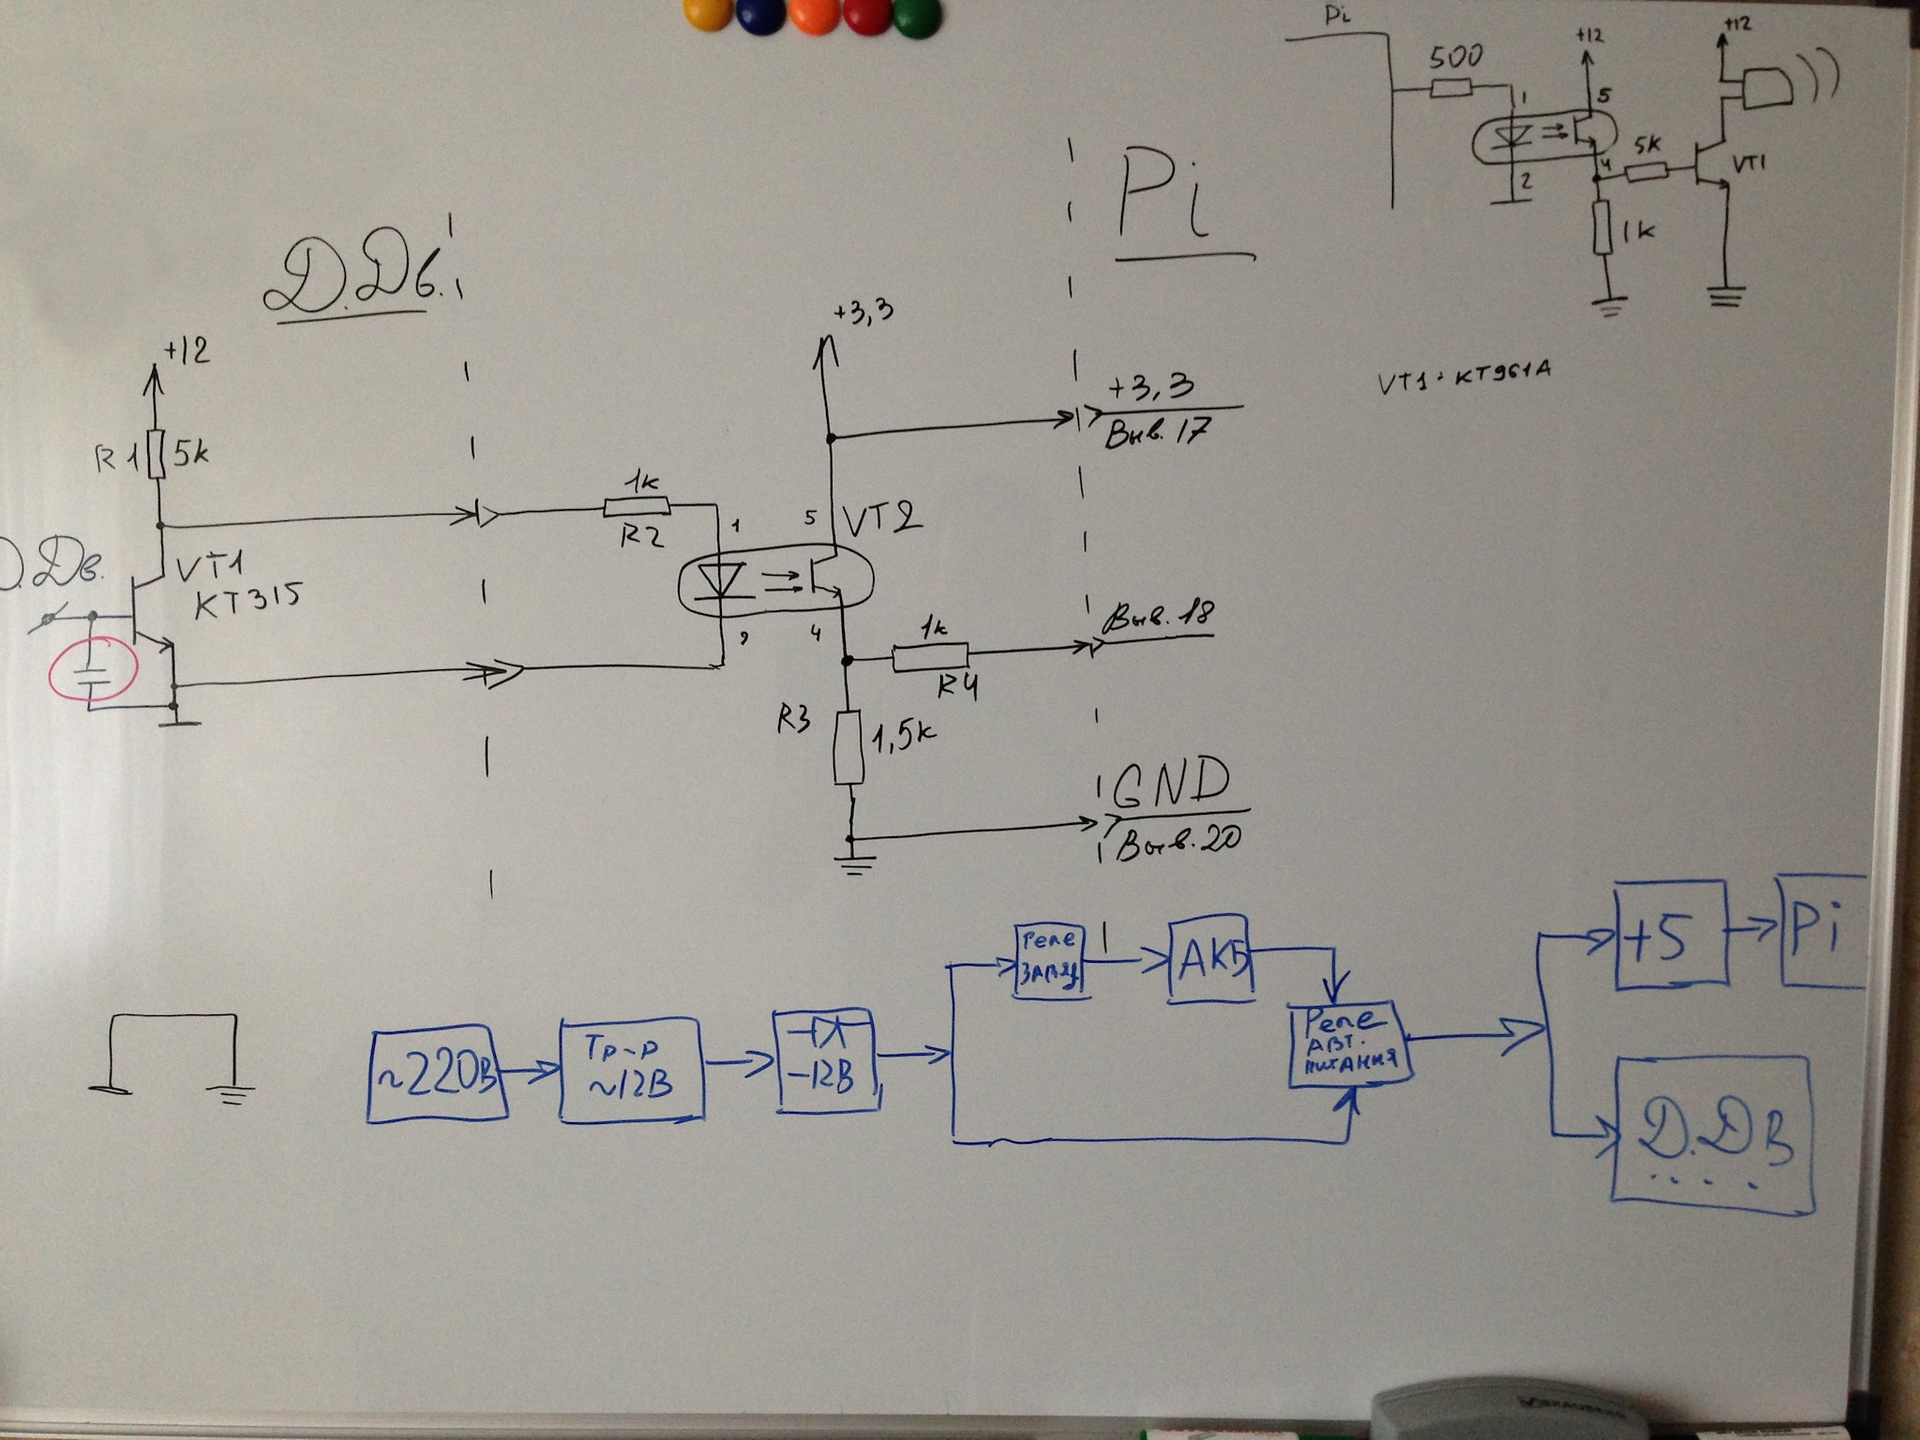 Pi
500
+12
+12
1
5
5k
4
VT1
2
1k
VT1 - КТ961А
Д.Дв.
Pi
+12
R1
5k
Д.Дв.
VT1
КТ315
1k
R2
1
5
VT2
4
+3,3
+3,3
Выв. 17
1k
R4
Выв. 18
R3
1,5k
GND
Выв. 20
~220В
Тр-р
~12В
-12В
Реле
АКБ
Реле
авт.
питания
+5
Pi
Д.ДВ